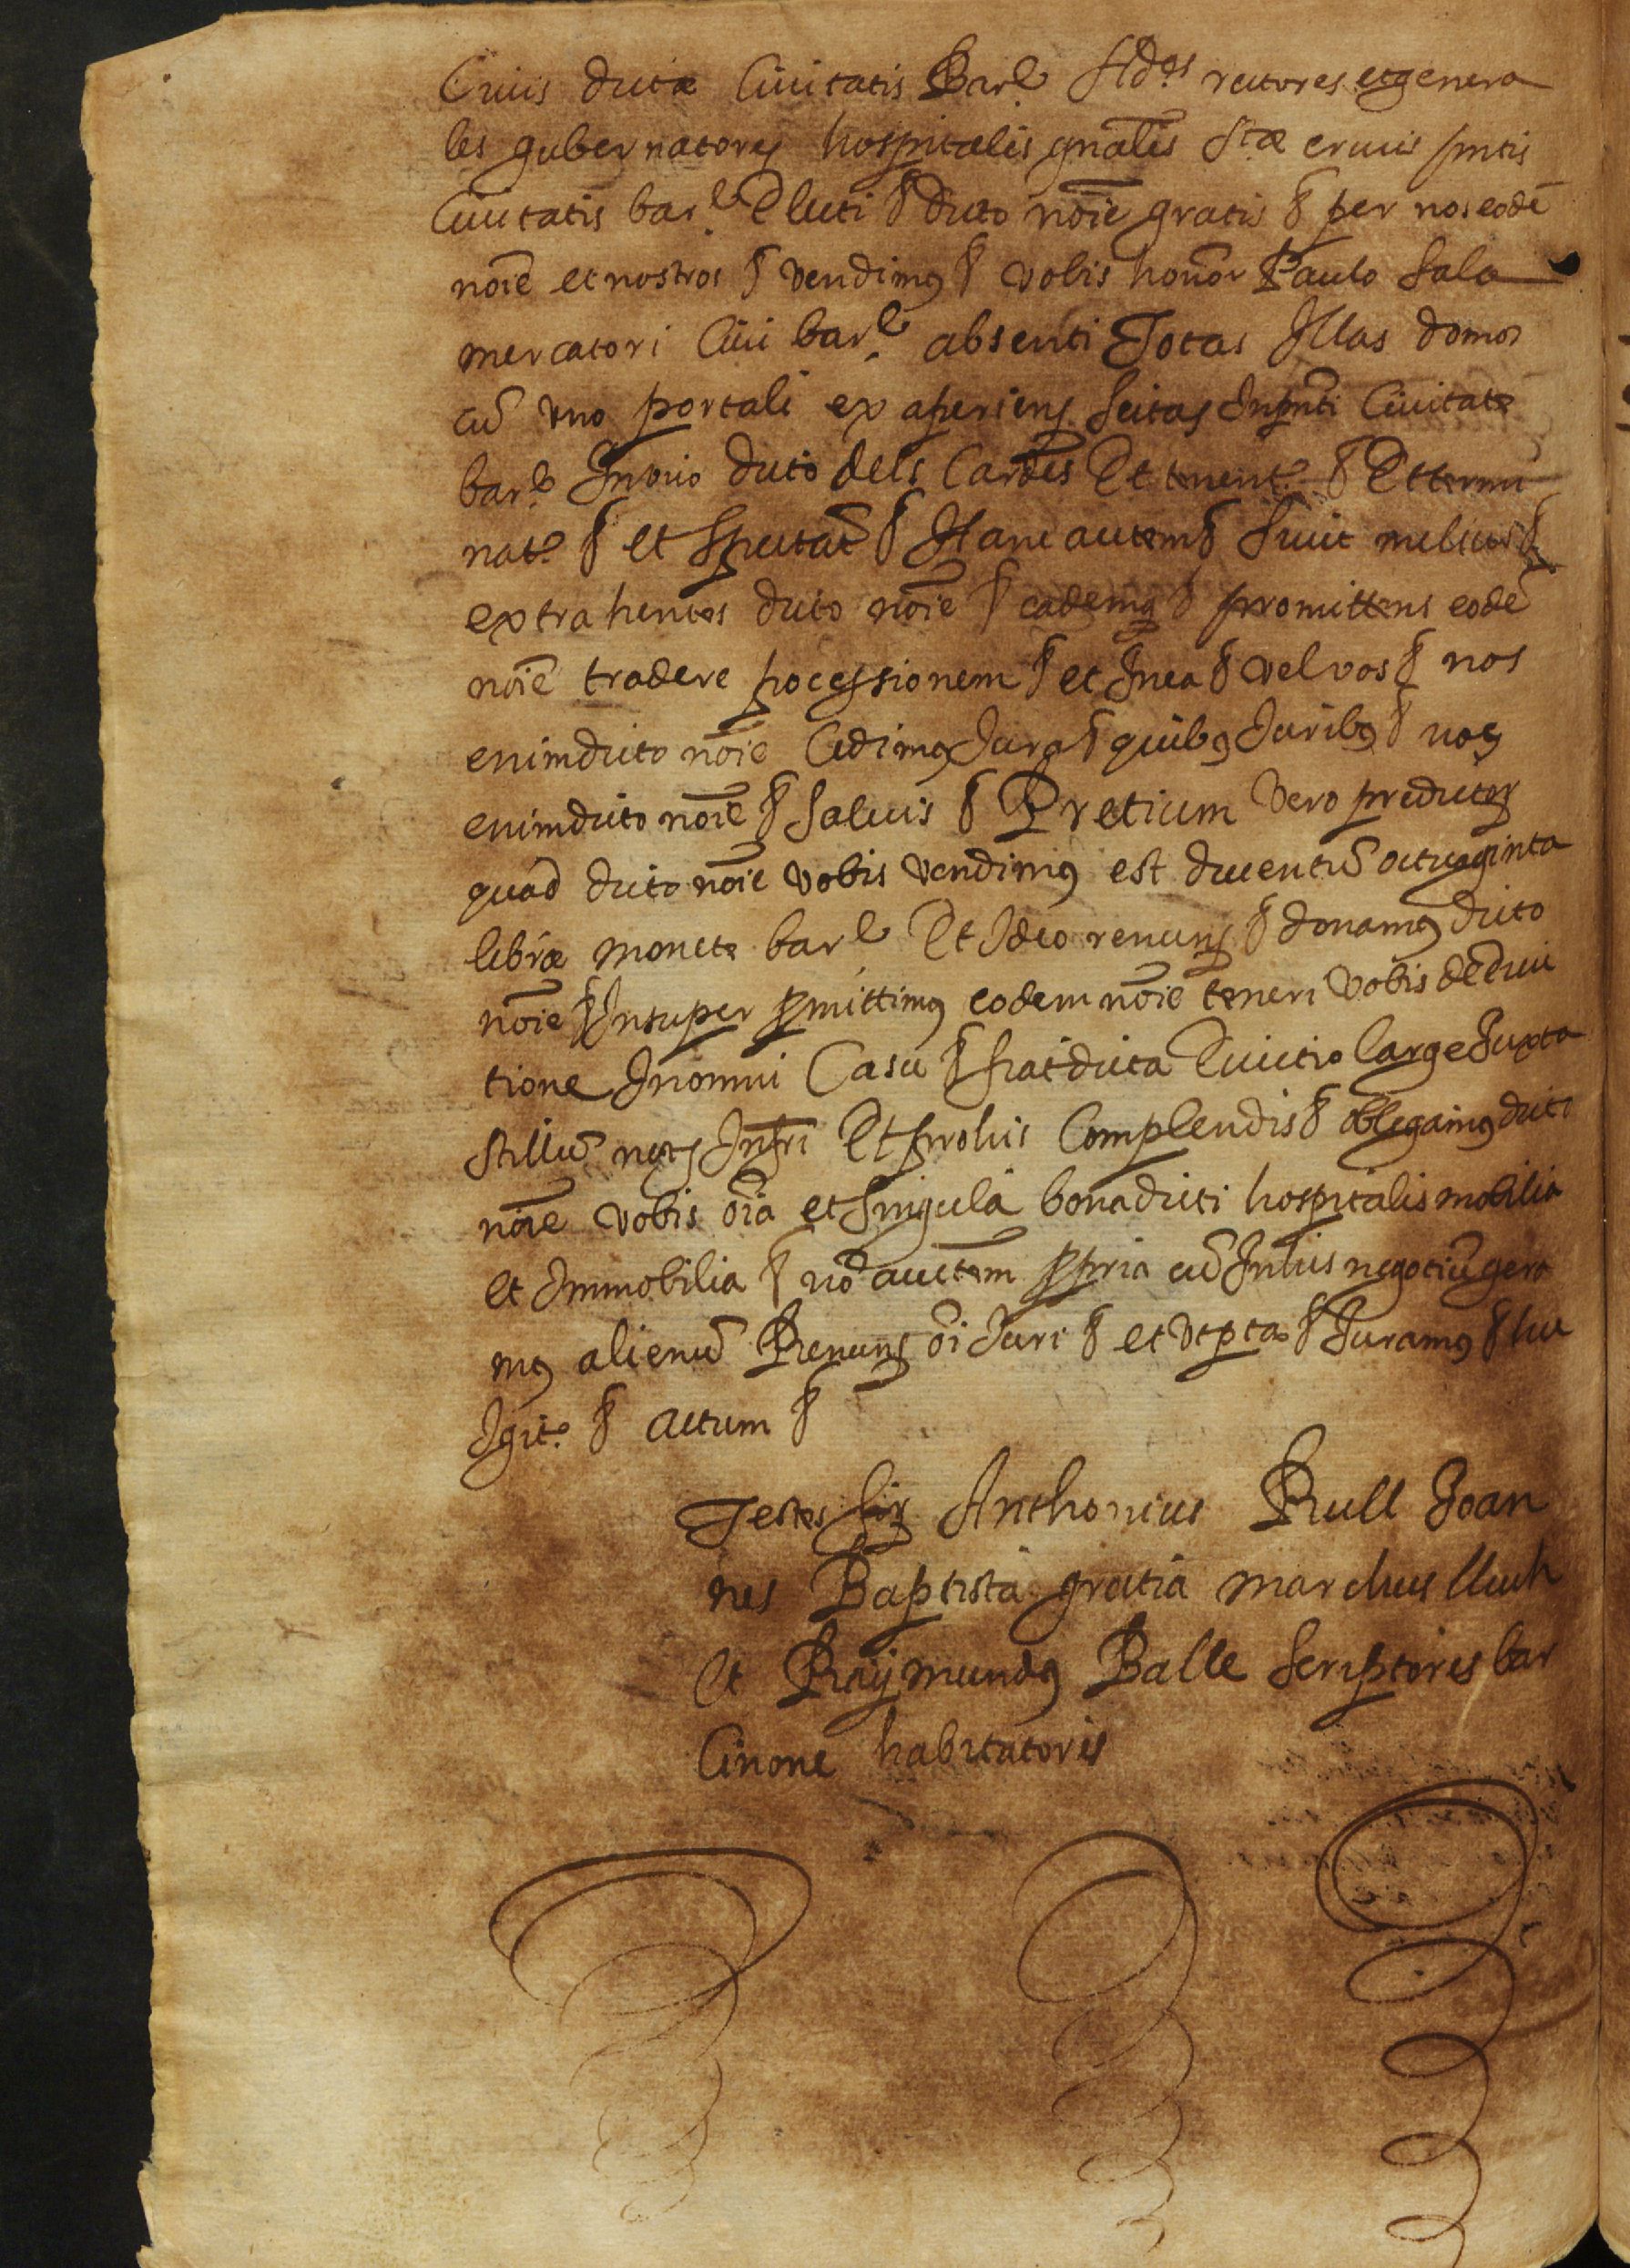 Civis dictæ Civitatis Barᵉ Adᵒˢ rectores et genera
les gubernatores hospitalis gñalis Stæ crucis pñtis
Civitatis barᵉ Electi § dicto noīe gratis § per nos eodē
noīe et nostros § vendimus § vobis honor Paulo Sala
mercatori Civi barᵉ absenti Totas Illas domos
cū vno portali ex aperiens scitas In pñti Civitate
barᵉ In vico dicto dels Carders Et tenentᵉ § Et termi
natᵉ § et Spectāt § Hanc autem § sicut melius §
extrahentes dicto noīe § eademq § promittens eodē
noīe tradere pocessionem § et In ea § vel vos § nos
enim dicto noīe Cedimus Jura § quibus Juribus § nos
enim dicto noīe § Salvis § Pretium vero predictor
quod dicto noīe vobis vendimus est ducentū octuaginta
libræ monete barᵉ Et Ideo renuns § donamus dicto
noīe § Insuper promittimus eodem noīe teneri vobis de evic
tione In omni Casu § fiat dicta Evictio large Juxta
stillū nots Infri Et pro his Complendis § obligamus dicto
noīe vobis oīa et singula bona dicti hospitalis mobilia
et Immobilia § nō auctem propria cū In his negotiū gera
mus alienū Renuns oī Juri § et vt pta § Juramus § hec
Igitᵣ § actum §
Testes sūt Anthonius Rull Joan
nes Baptista gratia marchus lluch
et Raymundus Balle Scriptores bar
Cinone habitatores